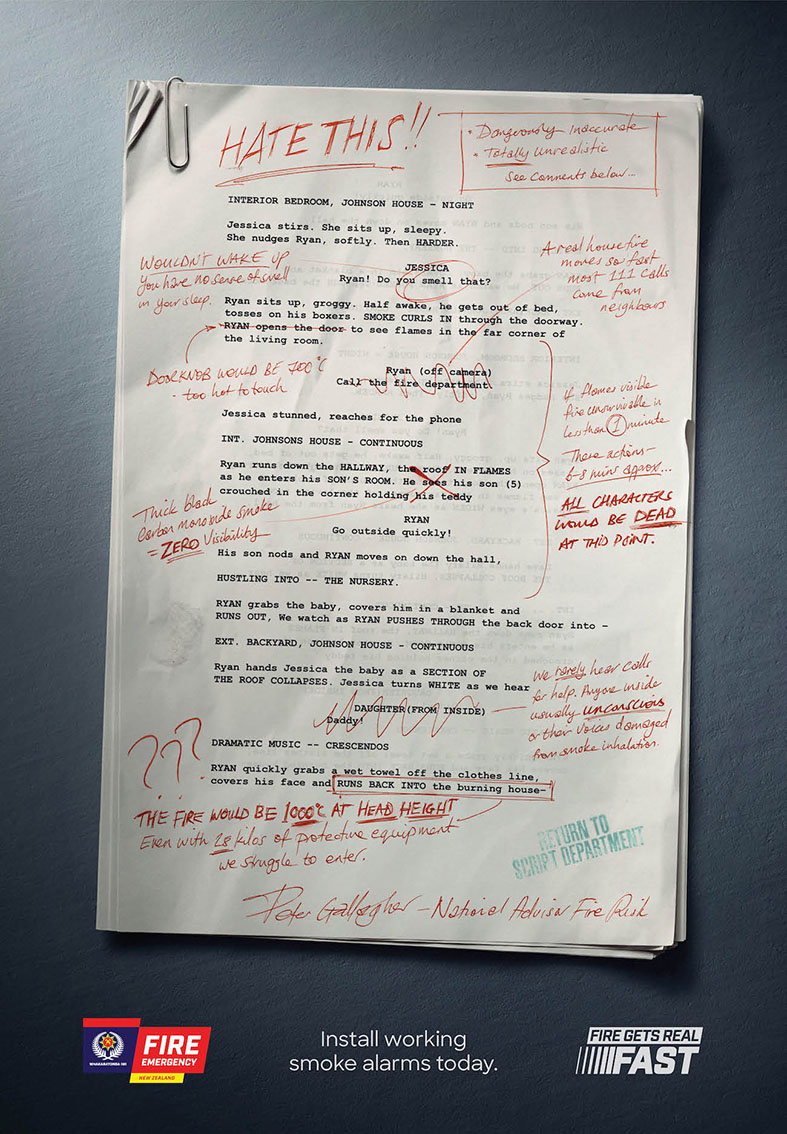 HATE THIS!!
• Dangerously inaccurate
• Totally unrealistic
See comments below...
INTERIOR BEDROOM, JOHNSON HOUSE - NIGHT
Jessica stirs. She sits up, sleepy.
She nudges Ryan, softly. Then HARDER.
WOULDN'T WAKE UP
you have no sense of smell
in your sleep.
JESSICA
Ryan! Do you smell that?
A real house fire
moves so fast
most 111 calls
come from
neighbours
Ryan sits up, groggy. Half awake, he gets out of bed,
tosses on his boxers. SMOKE CURLS IN through the doorway.
RYAN opens the door to see flames in the far corner of
the living room.
DOORKNOB WOULD BE 700°C
- too hot to touch
Ryan (off camera)
Call the fire department.
If flames visible
fire unsurvivable in
less than 1 minute
These actions -
6-8 mins approx...
ALL CHARACTERS
WOULD BE DEAD
AT THIS POINT.
Jessica stunned, reaches for the phone
INT. JOHNSONS HOUSE - CONTINUOUS
Ryan runs down the HALLWAY, the roof IN FLAMES
as he enters his SON'S ROOM. He sees his son (5)
crouched in the corner holding his teddy
Thick black
carbon monoxide smoke
= ZERO visibility
RYAN
Go outside quickly!
His son nods and RYAN moves on down the hall,
HUSTLING INTO -- THE NURSERY.
RYAN grabs the baby, covers him in a blanket and
RUNS OUT, We watch as RYAN PUSHES THROUGH the back door into -
EXT. BACKYARD, JOHNSON HOUSE - CONTINUOUS
Ryan hands Jessica the baby as a SECTION OF
THE ROOF COLLAPSES. Jessica turns WHITE as we hear
DAUGHTER(FROM INSIDE)
Daddy!
We rarely hear calls
for help. Anyone inside
usually unconscious
or their voices damaged
from smoke inhalation.
???
DRAMATIC MUSIC -- CRESCENDOS
RYAN quickly grabs a wet towel off the clothes line,
covers his face and RUNS BACK INTO the burning house-
THE FIRE WOULD BE 1000°C AT HEAD HEIGHT
Even with 28 kilos of protective equipment
we struggle to enter.
RETURN TO
SCRIPT DEPARTMENT
Peter Gallagher - National Advisor Fire Risk
FIRE
EMERGENCY
NEW ZEALAND
WHAKARATONGA IWI
Install working
smoke alarms today.
FIRE GETS REAL
FAST